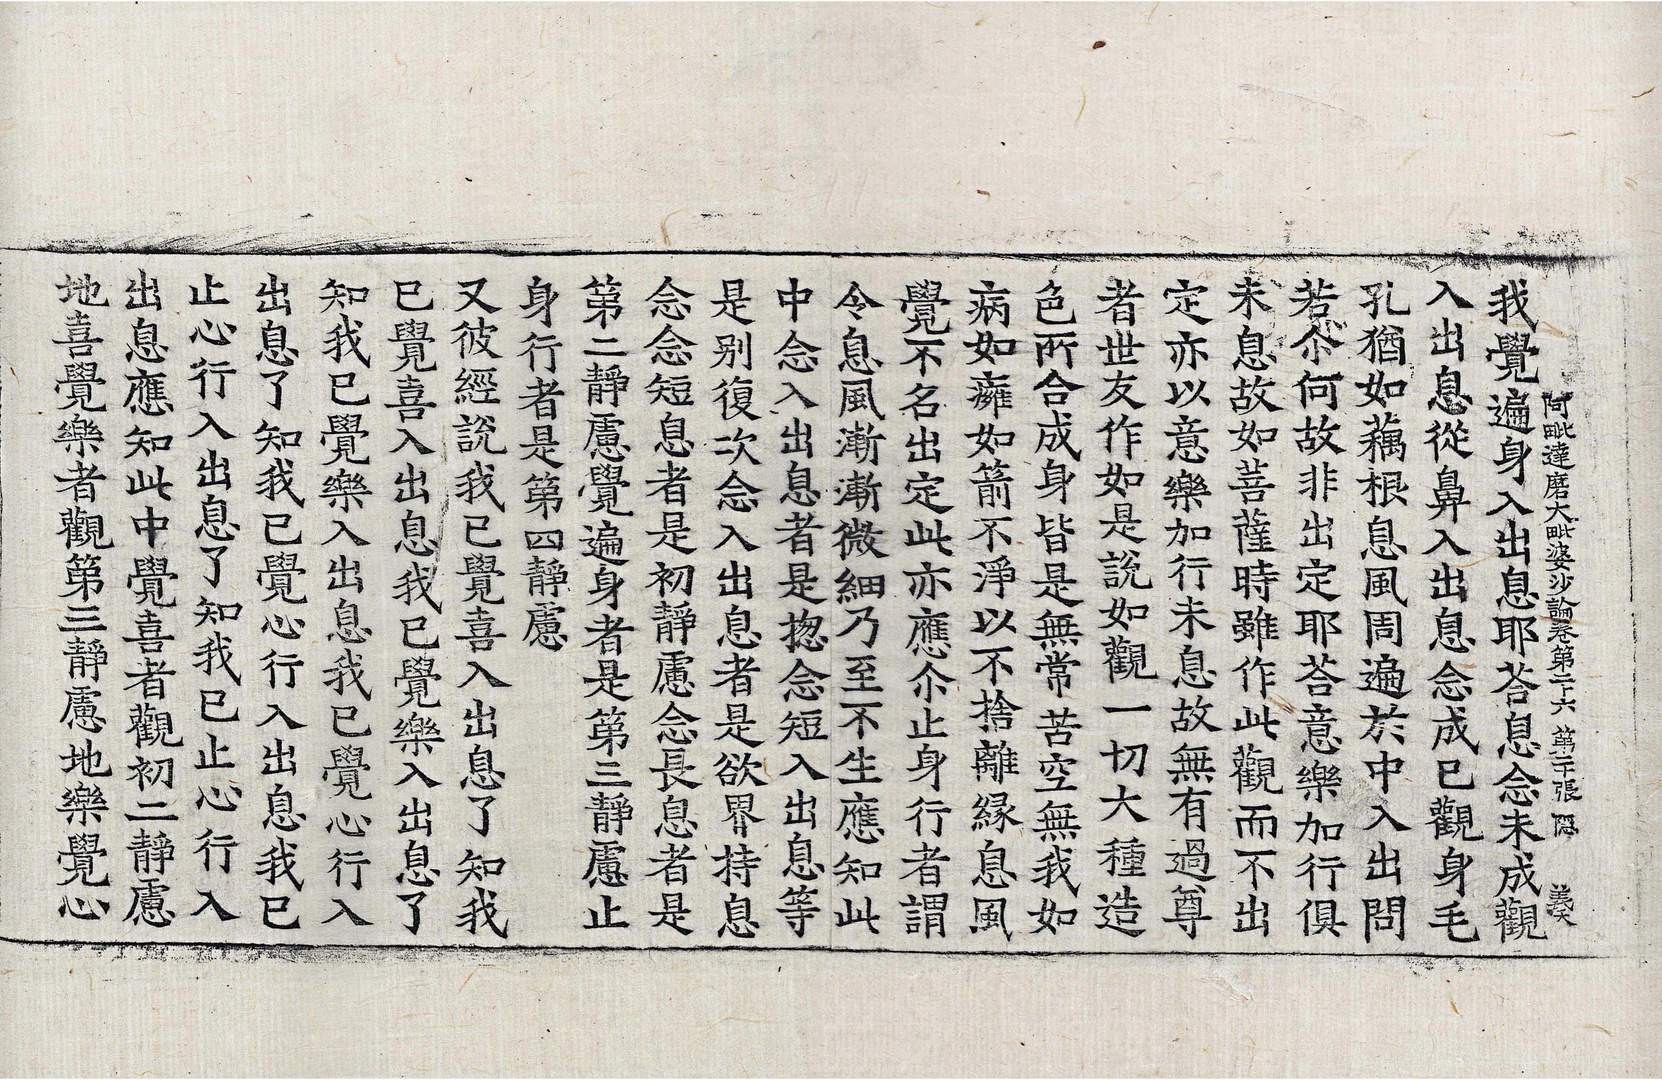 阿毗達磨大毗婆沙論卷第二十六 第二十張 隱 義天
我覺遍身入出息耶荅息念未成觀
入出息從鼻入出息念成已觀身毛
孔猶如藕根息風周遍於中入出問
若尒何故非出定耶荅意樂加行俱
未息故如菩薩時雖作此觀而不出
定亦以意樂加行未息故無有過尊
者世友作如是說如觀一切大種造
色所合成身皆是無常苦空無我如
病如癰如箭不淨以不捨離緣息風
覺不名出定此亦應尒止身行者謂
令息風漸漸微細乃至不生應知此
中念入出息者是揔念短入出息等
是别復次念入出息者是欲界持息
念念短息者是初靜慮念長息者是
第二靜慮覺遍身者是第三靜慮止
身行者是第四靜慮
又彼經說我已覺喜入出息了知我
已覺喜入出息我已覺樂入出息了
知我已覺樂入出息我已覺心行入
出息了知我已覺心行入出息我已
止心行入出息了知我已止心行入
出息應知此中覺喜者觀初二靜慮
地喜覺樂者觀第三靜慮地樂覺心